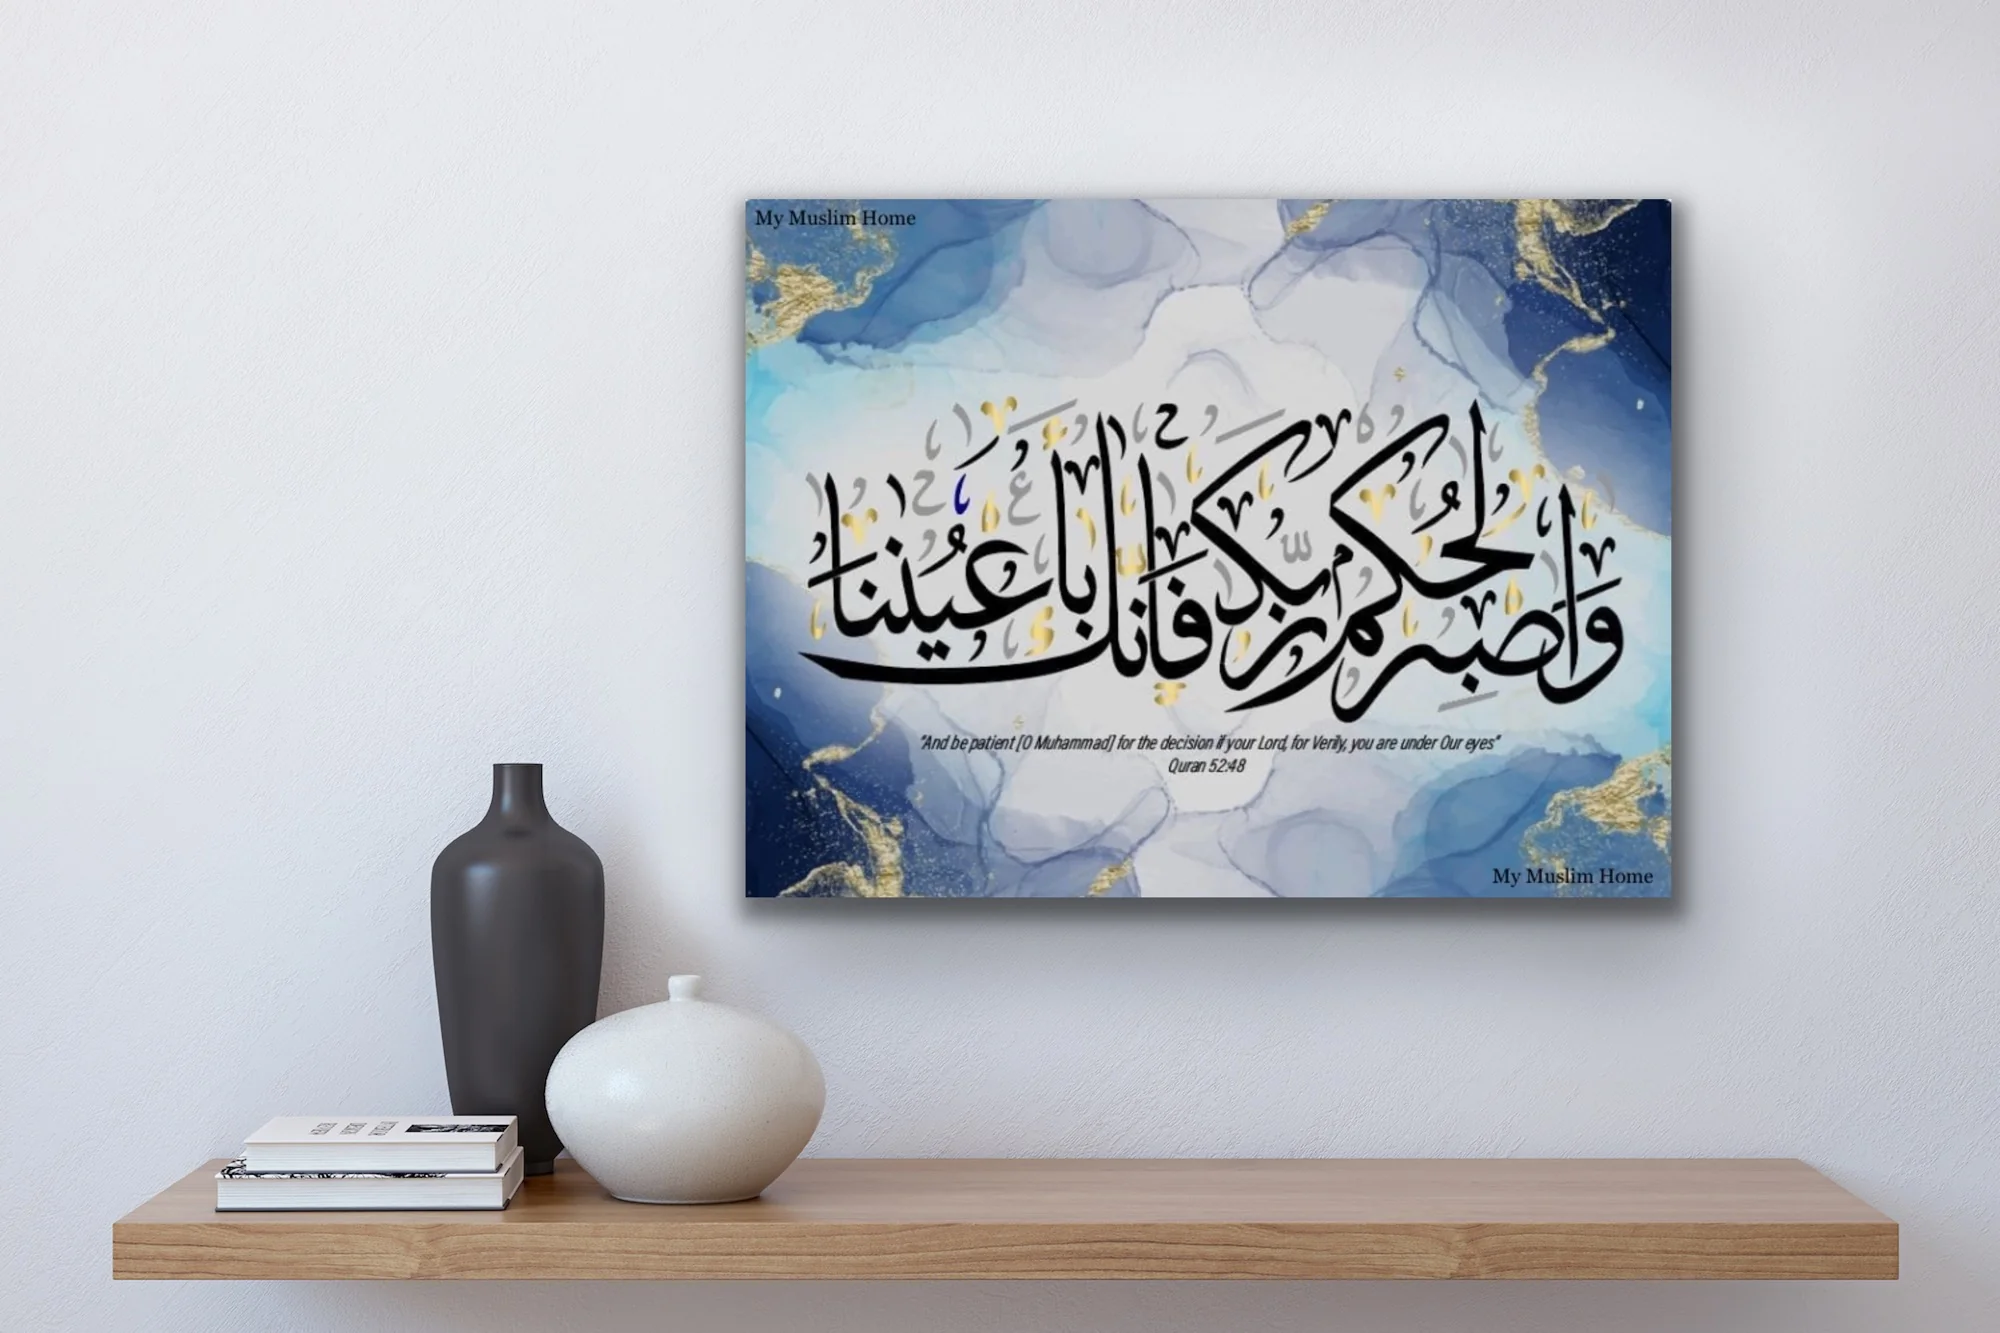 My Muslim Home
واصبر لحكم ربك فإنك بأعيننا
"And be patient [O Muhammad] for the decision if your Lord, for Verily, you are under Our eyes"
Quran 52:48
My Muslim Home